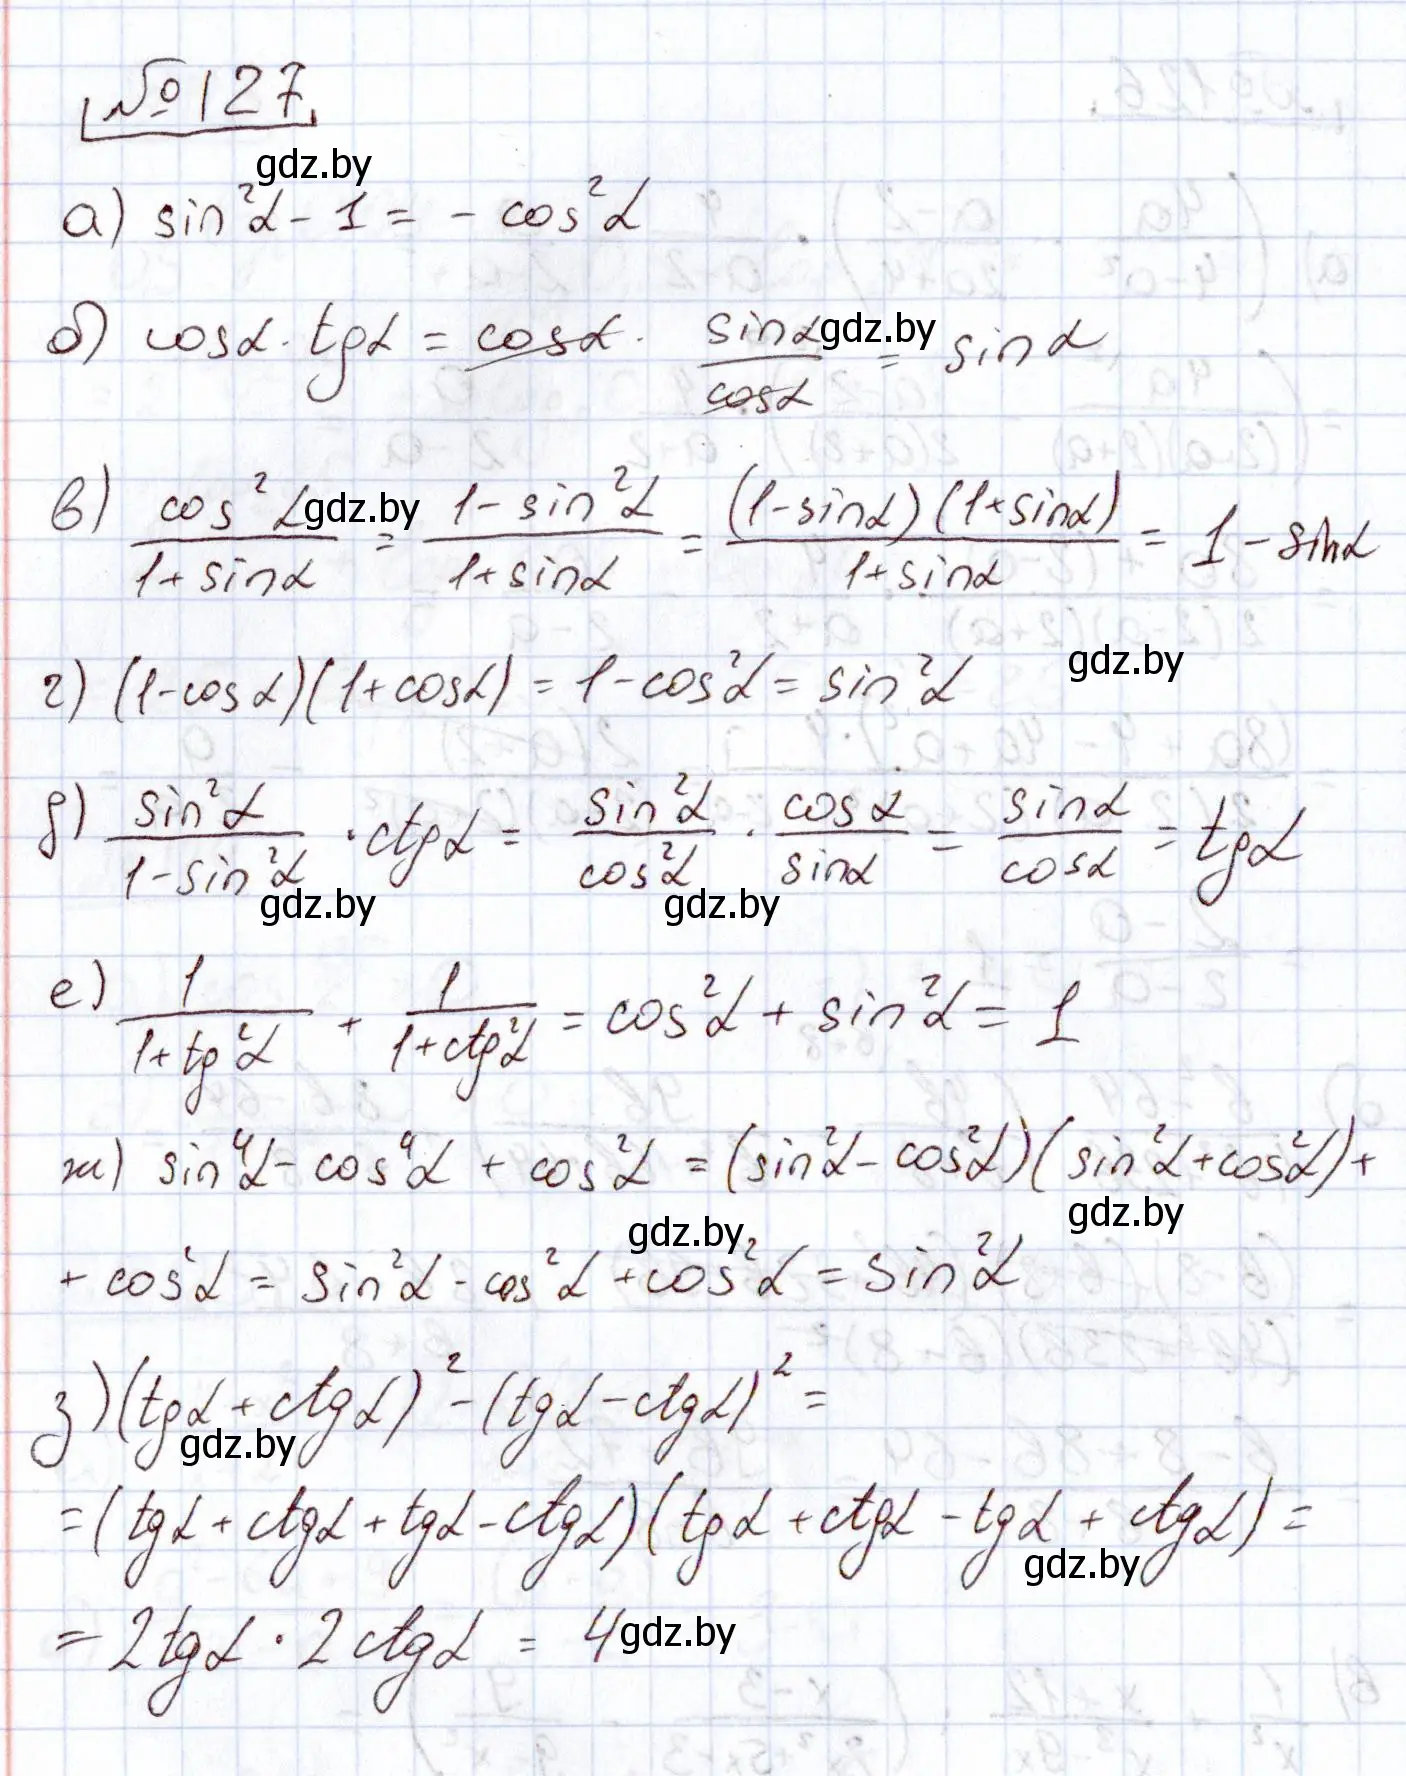 №127
gdz.by
а) sin²α - 1 = - cos²α
б) cosα · tgα = cosα · sinα/cosα = sinα
gdz.by
в) cos²α/(1+sinα) = (1-sin²α)/(1+sinα) = (1-sinα)(1+sinα)/(1+sinα) = 1-sinα
gdz.by
г) (1-cosα)(1+cosα) = 1-cos²α = sin²α
gdz.by
д) sin²α/(1-sin²α) · ctgα = sin²α/cos²α · cosα/sinα = sinα/cosα = tgα
gdz.by gdz.by
е) 1/(1+tg²α) + 1/(1+ctg²α) = cos²α + sin²α = 1
ж) sin⁴α - cos⁴α + cos²α = (sin²α - cos²α)(sin²α+cos²α)+
gdz.by gdz.by
+ cos²α = sin²α - cos²α + cos²α = sin²α
з) (tgα + ctgα)² - (tgα - ctgα)² =
gdz.by
= (tgα + ctgα + tgα - ctgα)(tgα + ctgα - tgα + ctgα) =
gdz.by
= 2tgα · 2ctgα = 4
gdz.by